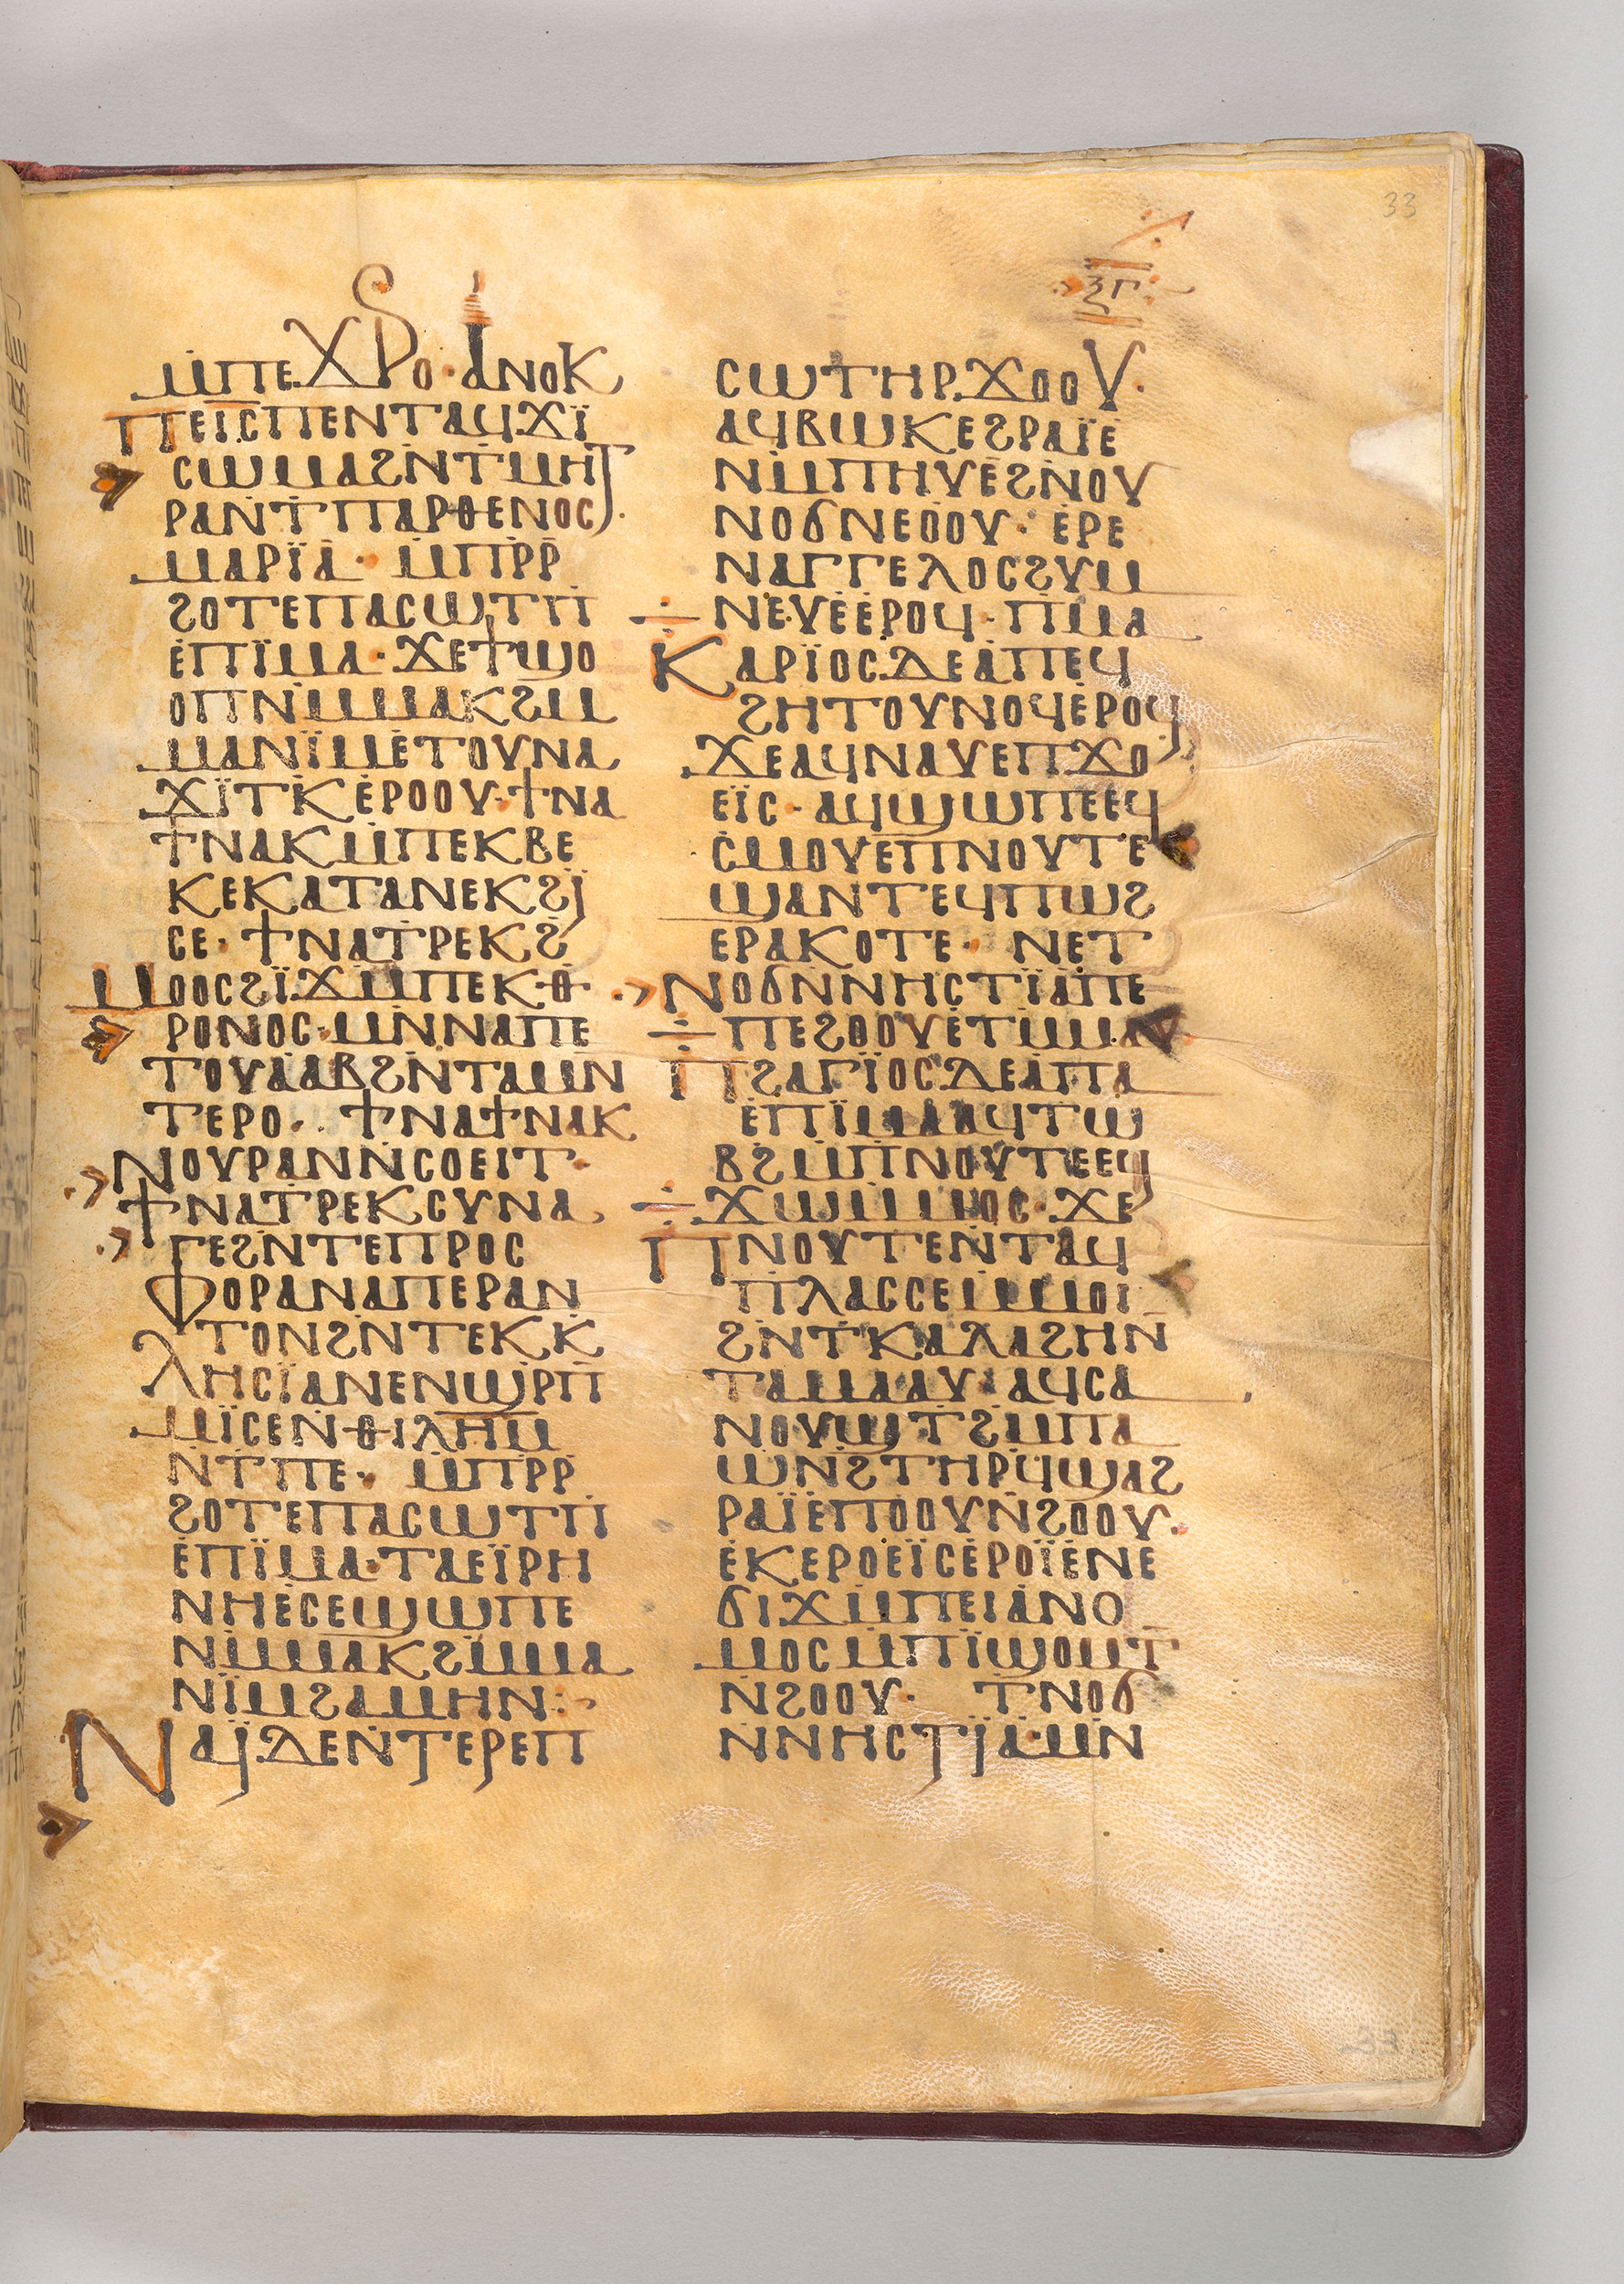 33
ⲝⲅ
ⲙ̇ⲡⲉϫⲣⲟ· ⲁⲛⲟⲕ
ⲡⲉⲓ̅ⲥ̅ⲡⲉⲛⲧⲁϥϫⲓ̈
ⲥⲱⲙⲁϩⲛ̇ⲧ̇ⲙⲏⲧ
ⲣⲁⲛ̇ⲧ̇ⲡⲁⲣⲑⲉⲛⲟⲥ·
ⲙⲁⲣⲓ̈ⲁ· ⲙ̇ⲡⲣ̇ⲣ̇
ϩⲟⲧⲉⲡⲁⲥⲱⲧⲡ̇
ⲉ̇ⲡⲓ̈ⲙⲁ· ϫⲉϯϣⲟ
ⲟⲡⲛⲙ̇ⲙⲁⲕϩⲙ̇
ⲙⲁⲛⲓ̈ⲙⲉ̇ⲧⲟⲩⲛⲁ
ϫⲓ̈ⲧⲕ̇ⲉ̇ⲣⲟⲟⲩ· ϯⲛⲁ
ϯⲛⲁⲕⲙ̇ⲡⲉⲕⲃⲉ
ⲕⲉⲕⲁⲧⲁⲛⲉⲕϩⲓ̈
ⲥⲉ· ϯⲛⲁⲧ̇ⲣⲉⲕϩ̇
ⲙⲟⲟⲥϩⲓ̈ϫⲙ̇ⲡⲉⲕⲑ
ⲣⲟⲛⲟⲥ· ⲙⲛ̇ⲛⲁⲡⲉ
ⲧⲟⲩⲁ̇ⲁⲃϩⲛ̇ⲧⲁⲙⲛ̇
ⲧⲉⲣⲟ· ϯⲛⲁϯⲛⲁⲕ
ⲛⲟⲩⲣⲁⲛⲛ̇ⲥⲟⲉⲓⲧ·
ϯⲛⲁⲧ̇ⲣⲉⲕⲥⲩⲛⲁ
ⲅⲉϩⲛ̇ⲧⲉⲡⲣⲟⲥ
ⲫⲟⲣⲁⲛⲁⲡⲉⲣⲁⲛ
ⲧⲟⲛϩⲛ̇ⲧⲉⲕⲕ̇
ⲗⲏⲥⲓ̈ⲁⲛⲉⲛϣⲣ̇ⲡ̇
ⲙⲓ̈ⲥⲉⲛ̇ⲑⲓⲗⲏ̅ⲙ̅
ⲛ̇ⲧ̇ⲡⲉ· ⲙ̇ⲡⲣ̇ⲣ̇
ϩⲟⲧⲉⲡⲁⲥⲱⲧⲡ̇
ⲉ̇ⲡⲓ̈ⲙⲁ· ⲧⲁⲉⲓ̈ⲣⲏ
ⲛⲏⲉ̇ⲥⲉϣⲱⲡⲉ
ⲛⲙ̇ⲙⲁⲕϩⲙ̇ⲙⲁ
ⲛⲓ̈ⲙϩⲁⲙⲏⲛ:
ⲛⲁⲓ̈ⲇⲉⲛ̇ⲧⲉⲣⲉⲡ
ⲥⲱⲧⲏⲣϫⲟⲟⲩ·
ⲁϥⲃⲱⲕⲉϩⲣⲁⲓ̈ⲉ̇
ⲛⲙ̇ⲡⲏⲩⲉ̇ϩⲛ̇ⲟⲩ
ⲛⲟϭⲛⲉⲟⲟⲩ· ⲉ̇ⲣⲉ
ⲛⲁⲅⲅⲉⲗⲟⲥϩⲩⲙ
ⲛⲉⲩⲉ̇ⲉ̇ⲣⲟϥ· ⲡⲙⲁ
ⲕⲁⲣⲓ̈ⲟⲥⲇⲉⲁ̇ⲡⲉϥ
ϩⲏⲧⲟⲩⲛⲟϥⲉ̇ⲣⲟϥ
ϫⲉⲁϥⲛⲁⲩⲉⲡϫⲟ
ⲉⲓ̈ⲥ· ⲁϥϣⲱⲡⲉⲉϥ
ⲥ̇ⲙⲟⲩⲉⲡⲛⲟⲩⲧⲉ
ϣⲁⲛⲧⲉϥⲡⲱϩ
ⲉⲣⲁⲕⲟⲧⲉ· ⲛⲉⲧ
ⲛⲟϭⲛ̇ⲛⲏⲥⲧⲓ̈ⲁ̇ⲡⲉ
ⲡⲉϩⲟⲟⲩⲉ̇ⲧⲙ̇ⲙⲁⲩ·
ⲡϩⲁⲅⲓ̈ⲟⲥⲇⲉⲁⲡⲁ
ⲉ̇ⲡⲓ̈ⲙⲁⲁϥⲧⲱ
ⲃϩⲙ̇ⲡⲛⲟⲩⲧⲉⲉϥ
ϫⲱⲙ̇ⲙⲟⲥ· ϫⲉ
ⲡⲛⲟⲩⲧⲉⲛ̇ⲧⲁϥ
ⲡⲗⲁⲥⲥⲉⲙ̇ⲙⲟⲓ
ϩⲛ̇ⲧ̇ⲕⲁⲗⲁϩⲏⲛ̇
ⲧⲁⲙⲁⲁⲩ· ⲁϥⲥⲁ
ⲛⲟⲩϣⲧϩⲙ̇ⲡⲁ
ⲱⲛϩ̇ⲧⲏⲣϥ̇ϣⲁϩ
ⲣⲁⲓ̈ⲉ̇ⲡⲟⲟⲩⲛ̇ϩⲟⲟⲩ·
ⲉ̇ⲕⲉⲣⲟⲉⲓ̈ⲥⲉ̇ⲣⲟⲓ̈ⲉ̇ⲛⲉ
ϭⲓϫⲙ̇ⲡⲉⲓⲁ̇ⲛⲟ
ⲙⲟⲥⲙ̇ⲡⲓ̈ϣⲟⲙⲧ
ⲛϩⲟⲟⲩ· ⲧⲛⲟϭ
ⲛ̇ⲛⲏⲥⲧⲓ̈ⲁ·ⲙⲛ̇